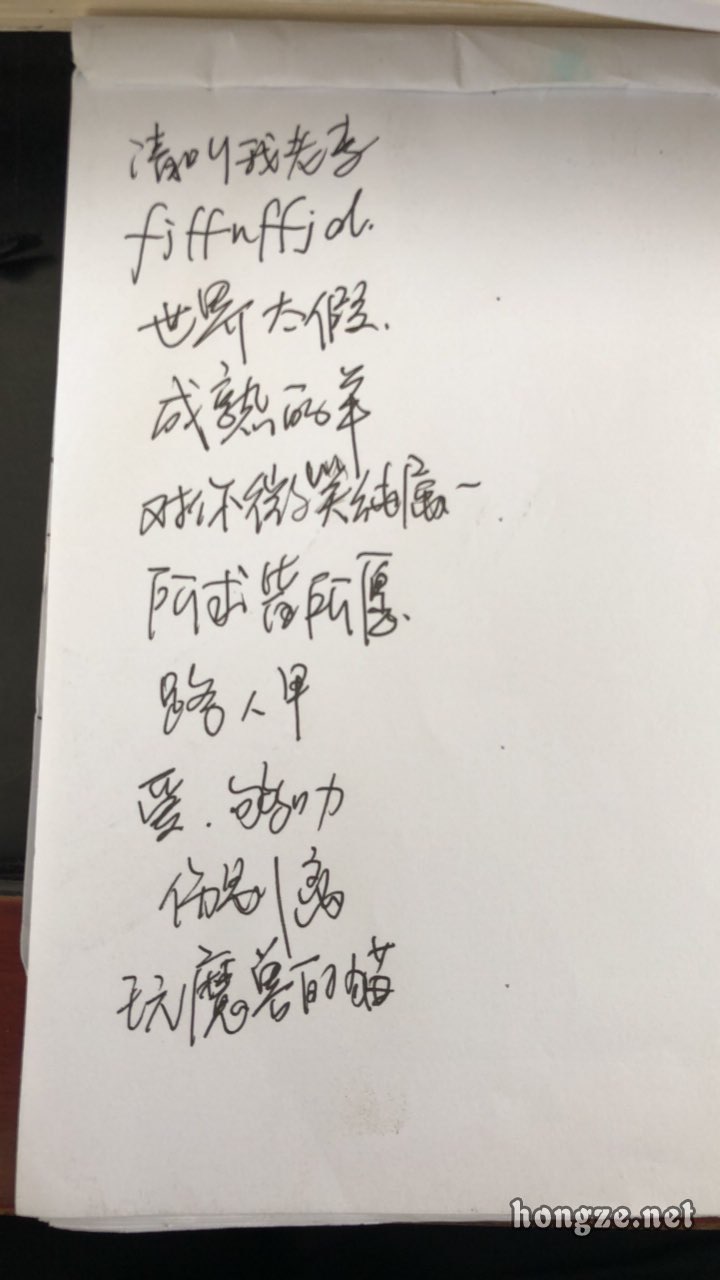 请叫我老李
fjffnffjd.
世界太假.
成熟的羊
对你微笑纯属一
所求皆所愿.
路人甲
爱.
伤感
玩魔兽的猫
hongze.net